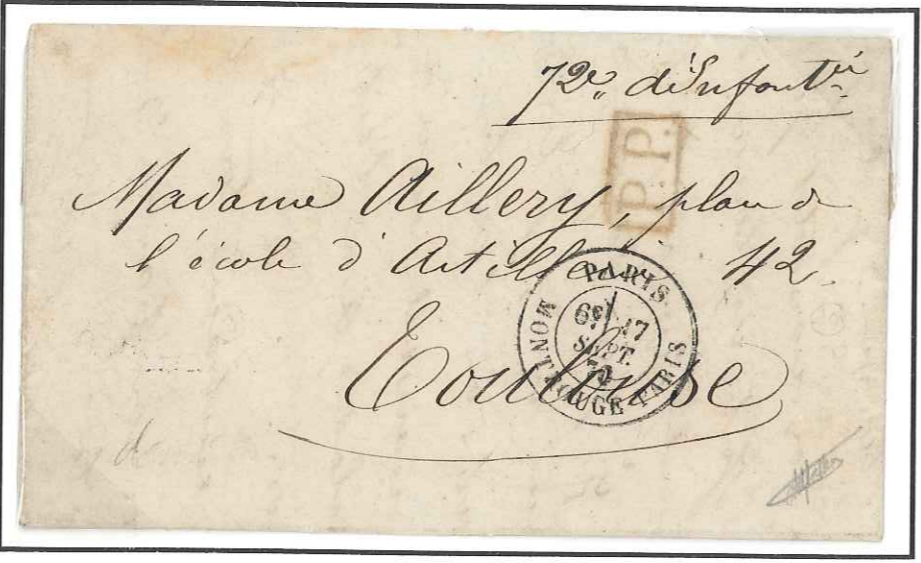 72e d'Infantie
P.P.
Madame Aillery, place de
l'école d'Artillerie 42.
Toulouse
PARIS
6E 17
SEPT.
70
MONTROUGE-PARIS